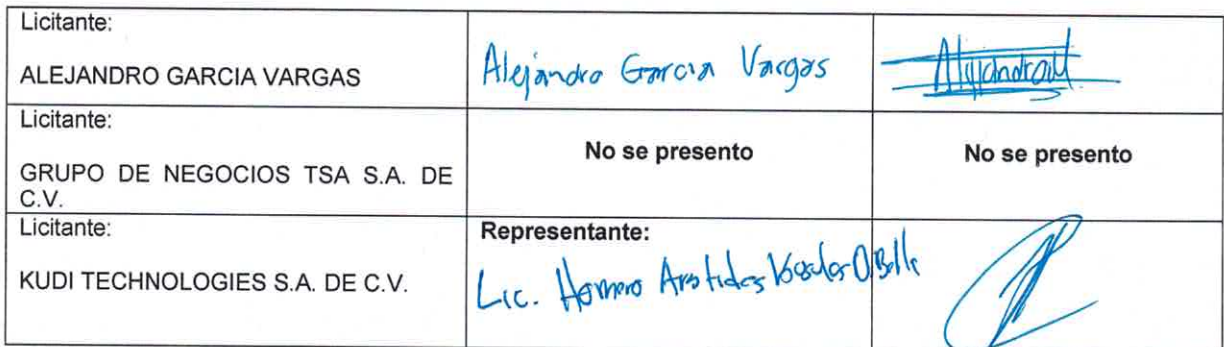 Licitante:
ALEJANDRO GARCIA VARGAS
Alejandro Garcia Vargas
Licitante:
GRUPO DE NEGOCIOS TSA S.A. DE
C.V.
No se presento
No se presento
Licitante:
KUDI TECHNOLOGIES S.A. DE C.V.
Representante:
Lic. Homero